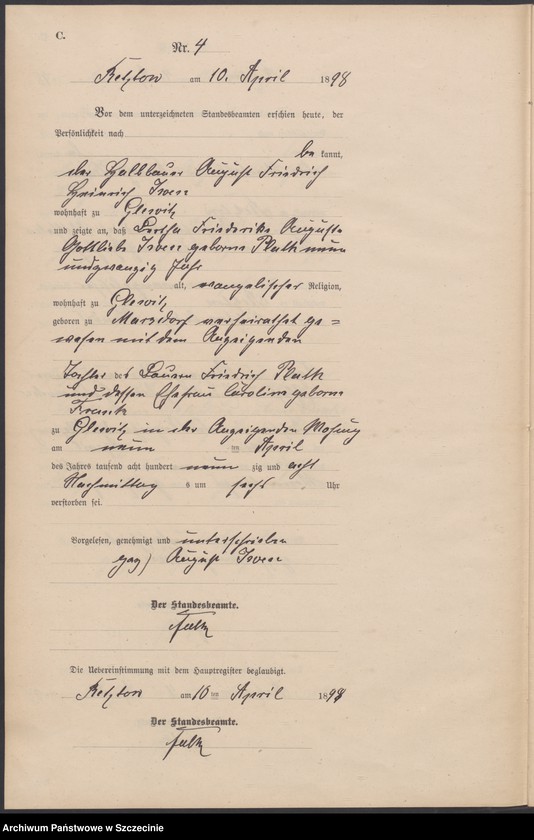 C.
Nr. 4
am 10. April 1898
Vor dem unterzeichneten Standesbeamten erschien heute, der
Persönlichkeit nach
be kannt,
der Halbbauer August Friedrich
Heinrich
wohnhaft zu Glewitz
und zeigte an, daß Bertha Friederike Auguste
Gottliebe geborene Plath neun
undzwanzig Jahr
alt, evangelischer Religion,
wohnhaft zu Glewitz
geboren zu Marsdorf verheirathet ge =
wesen mit dem Anzeigenden
Tochter des Bauern Friedrich Plath
und dessen Ehefrau Caroline geborene
zu Glewitz in der Anzeigenden Wohnung
am neun ten April
des Jahres tausend acht hundert neun zig und acht
Nachmittag s um sechs Uhr
verstorben sei.
Vorgelesen, genehmigt und unterschrieben
gez) August
Der Standesbeamte.
Die Uebereinstimmung mit dem Hauptregister beglaubigt.
am 10 ten April 1898
Der Standesbeamte.
Archiwum Państwowe w Szczecinie